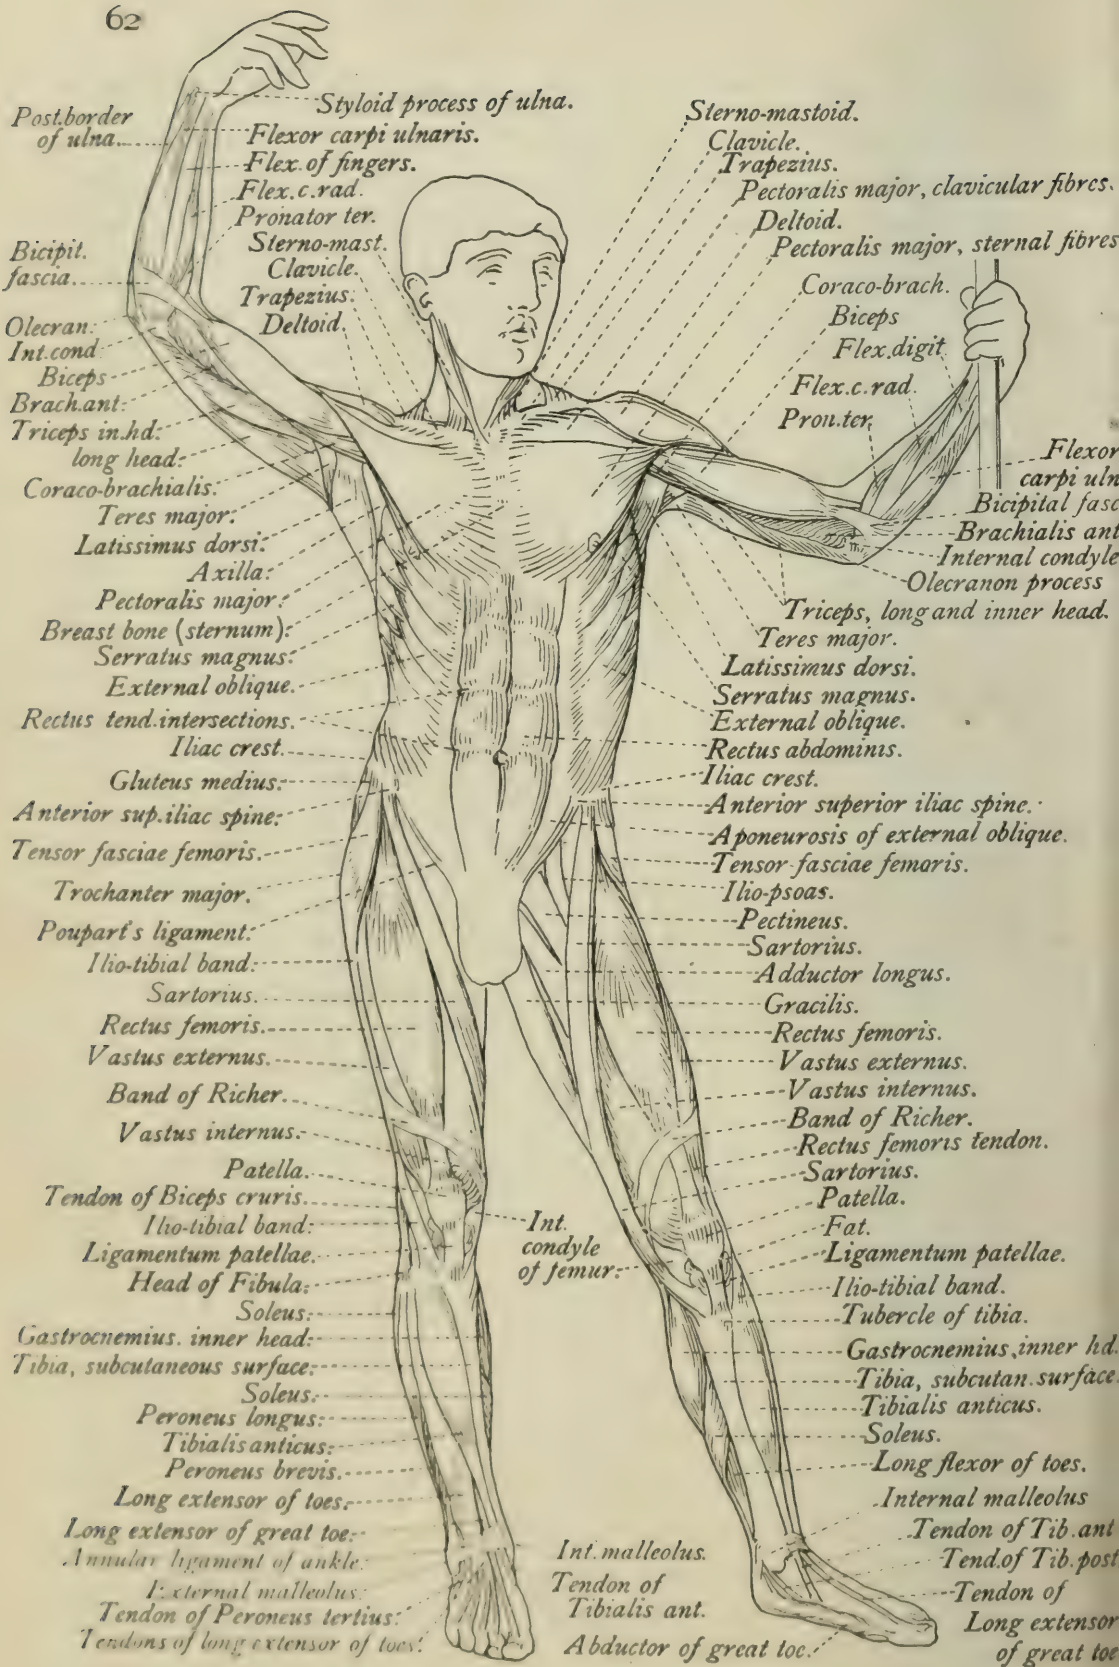 62
Post.border
of ulna.
Styloid process of ulna.
Flexor carpi ulnaris.
Flex. of fingers.
Flex.c.rad.
Pronator ter.
Sterno-mast.
Clavicle.
Trapezius.
Deltoid.
Bicipit.
fascia.
Olecran.
Int.cond
Biceps
Brach.ant.
Triceps in.hd.
long head.
Coraco-brachialis.
Teres major.
Latissimus dorsi.
Axilla.
Pectoralis major.
Breast bone (sternum).
Serratus magnus.
External oblique.
Rectus tend.intersections.
Iliac crest.
Gluteus medius.
Anterior sup.iliac spine.
Tensor fasciae femoris.
Trochanter major.
Poupart's ligament.
Ilio-tibial band.
Sartorius.
Rectus femoris.
Vastus externus.
Band of Richer.
Vastus internus.
Patella.
Tendon of Biceps cruris.
Ilio-tibial band.
Ligamentum patellae.
Head of Fibula.
Soleus.
Gastrocnemius. inner head.
Tibia, subcutaneous surface.
Soleus.
Peroneus longus.
Tibialis anticus.
Peroneus brevis.
Long extensor of toes.
Long extensor of great toe.
Annular ligament of ankle.
External malleolus.
Tendon of Peroneus tertius.
Tendons of long extensor of toes.
Sterno-mastoid.
Clavicle.
Trapezius.
Pectoralis major, clavicular fibres.
Deltoid.
Pectoralis major, sternal fibres
Coraco-brach.
Biceps
Flex.digit
Flex.c.rad.
Pron.ter.
Flexor
carpi uln
Bicipital fasc
Brachialis ant
Internal condyle
Olecranon process
Triceps, long and inner head.
Teres major.
Latissimus dorsi.
Serratus magnus.
External oblique.
Rectus abdominis.
Iliac crest.
Anterior superior iliac spine.
Aponeurosis of external oblique.
Tensor fasciae femoris.
Ilio-psoas.
Pectineus.
Sartorius.
Adductor longus.
Gracilis.
Rectus femoris.
Vastus externus.
Vastus internus.
Band of Richer.
Rectus femoris tendon.
Sartorius.
Patella.
Fat.
Ligamentum patellae.
Ilio-tibial band.
Tubercle of tibia.
Gastrocnemius, inner hd.
Tibia, subcutan. surface.
Tibialis anticus.
Soleus.
Long flexor of toes.
Internal malleolus
Tendon of Tib. ant
Tend. of Tib. post
Tendon of
Long extensor
of great toe
Int.
condyle
of femur.
Int. malleolus.
Tendon of
Tibialis ant.
Abductor of great toe.